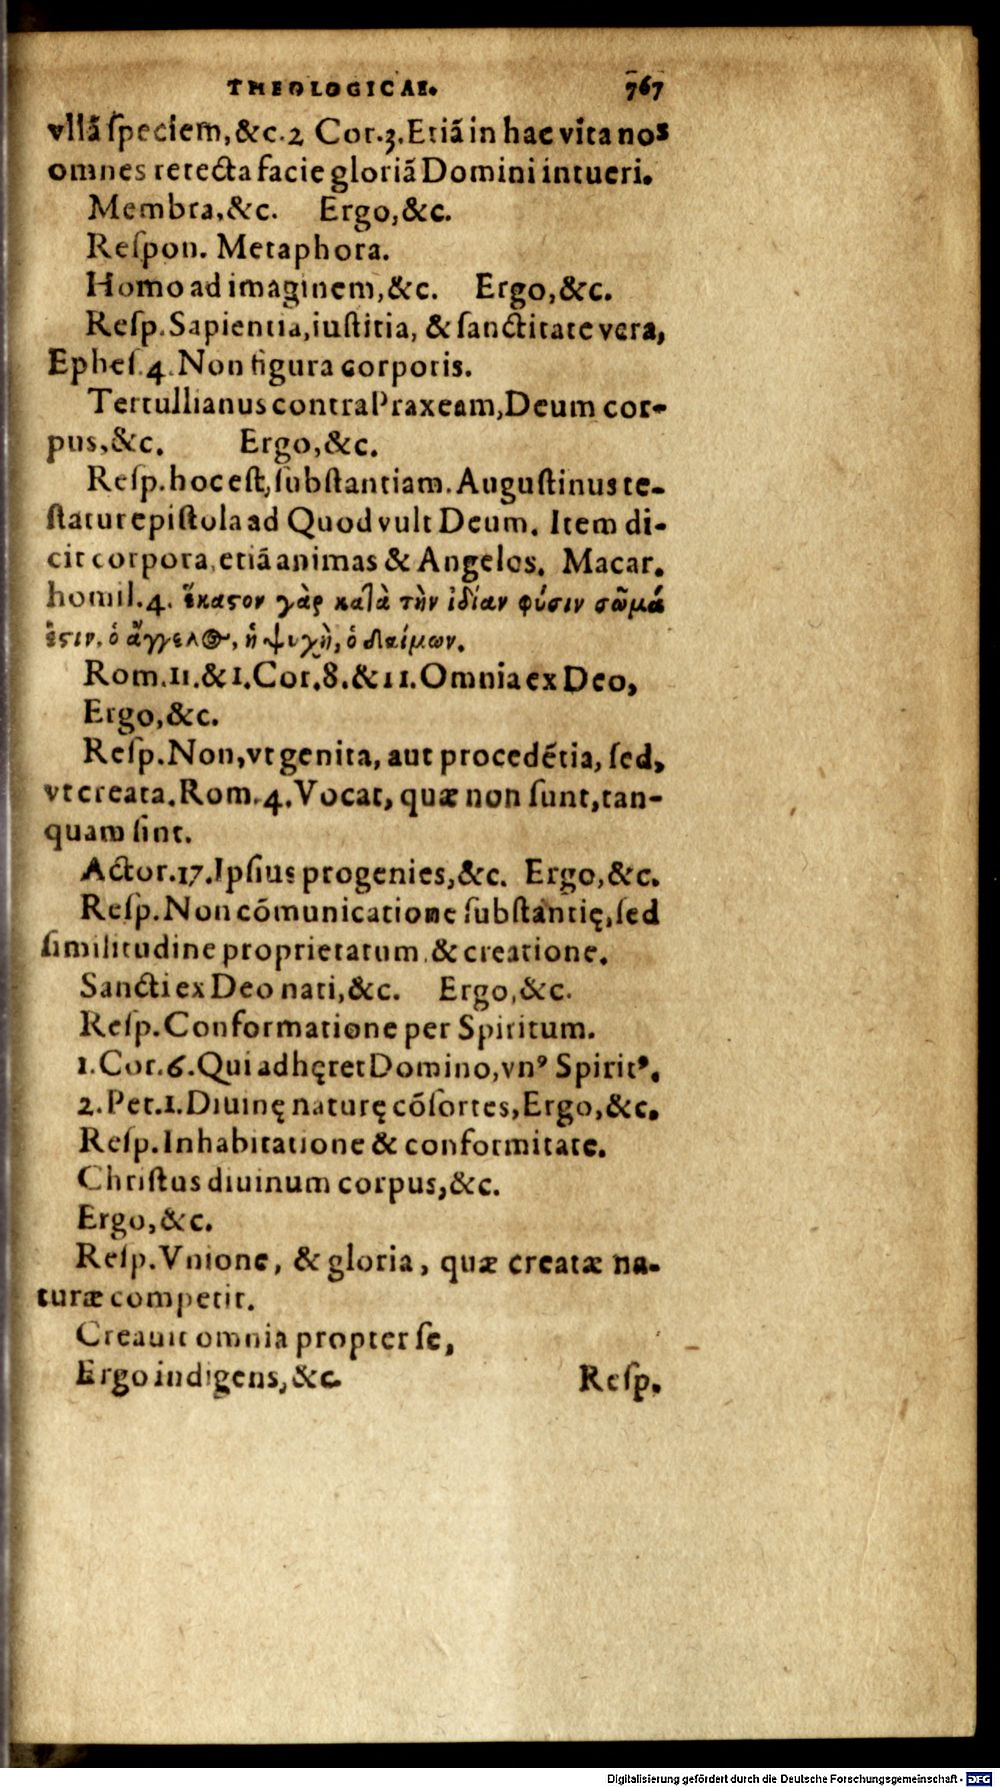 THEOLOGICAE. 767
vllā ſpeciem, &c. 2 Cor. 3. Etiā in hac vita nos
omnes retecta facie gloriā Domini intueri.
Membra, &c. Ergo, &c.
Reſpon. Metaphora.
Homo ad imaginem, &c. Ergo, &c.
Reſp. Sapientia, iuſtitia, & ſanctitate vera,
Epheſ. 4. Non figura corporis.
Tertullianus contra Praxeam, Deum cor-
pus, &c. Ergo, &c.
Reſp. hoc eſt, ſubſtantiam. Auguſtinus te-
ſtatur epiſtola ad Quod vult Deum. Item di-
cit corpora, etiā animas & Angelos. Macar.
homil. 4. ἕκαϛον γὰρ καλὰ τὴν ἰδίαν φύσιν σῶμά
ἐϛιν, ὁ ἄγγελος, ἡ ψυχὴ, ὁ δαίμων.
Rom. 11. & 1. Cor. 8. & 11. Omnia ex Deo,
Ergo, &c.
Reſp. Non, vt genita, aut procedētia, ſed,
vt creata. Rom. 4. Vocat, quæ non ſunt, tan-
quam ſint.
Actor. 17. Ipſius progenies, &c. Ergo, &c.
Reſp. Non cōmunicatione ſubſtantię, ſed
ſimilitudine proprietatum & creatione.
Sancti ex Deo nati, &c. Ergo, &c.
Reſp. Conformatione per Spiritum.
1. Cor. 6. Qui adhęret Domino, vnꝰ Spiritꝰ.
2. Pet. 1. Diuinę naturę cōſortes, Ergo, &c.
Reſp. Inhabitatione & conformitate.
Chriſtus diuinum corpus, &c.
Ergo, &c.
Reſp. Vnione, & gloria, quæ creatæ na-
turæ competit.
Creauit omnia propter ſe,
Ergo indigens, &c. Reſp.
Digitalisierung gefördert durch die Deutsche Forschungsgemeinschaft - DFG